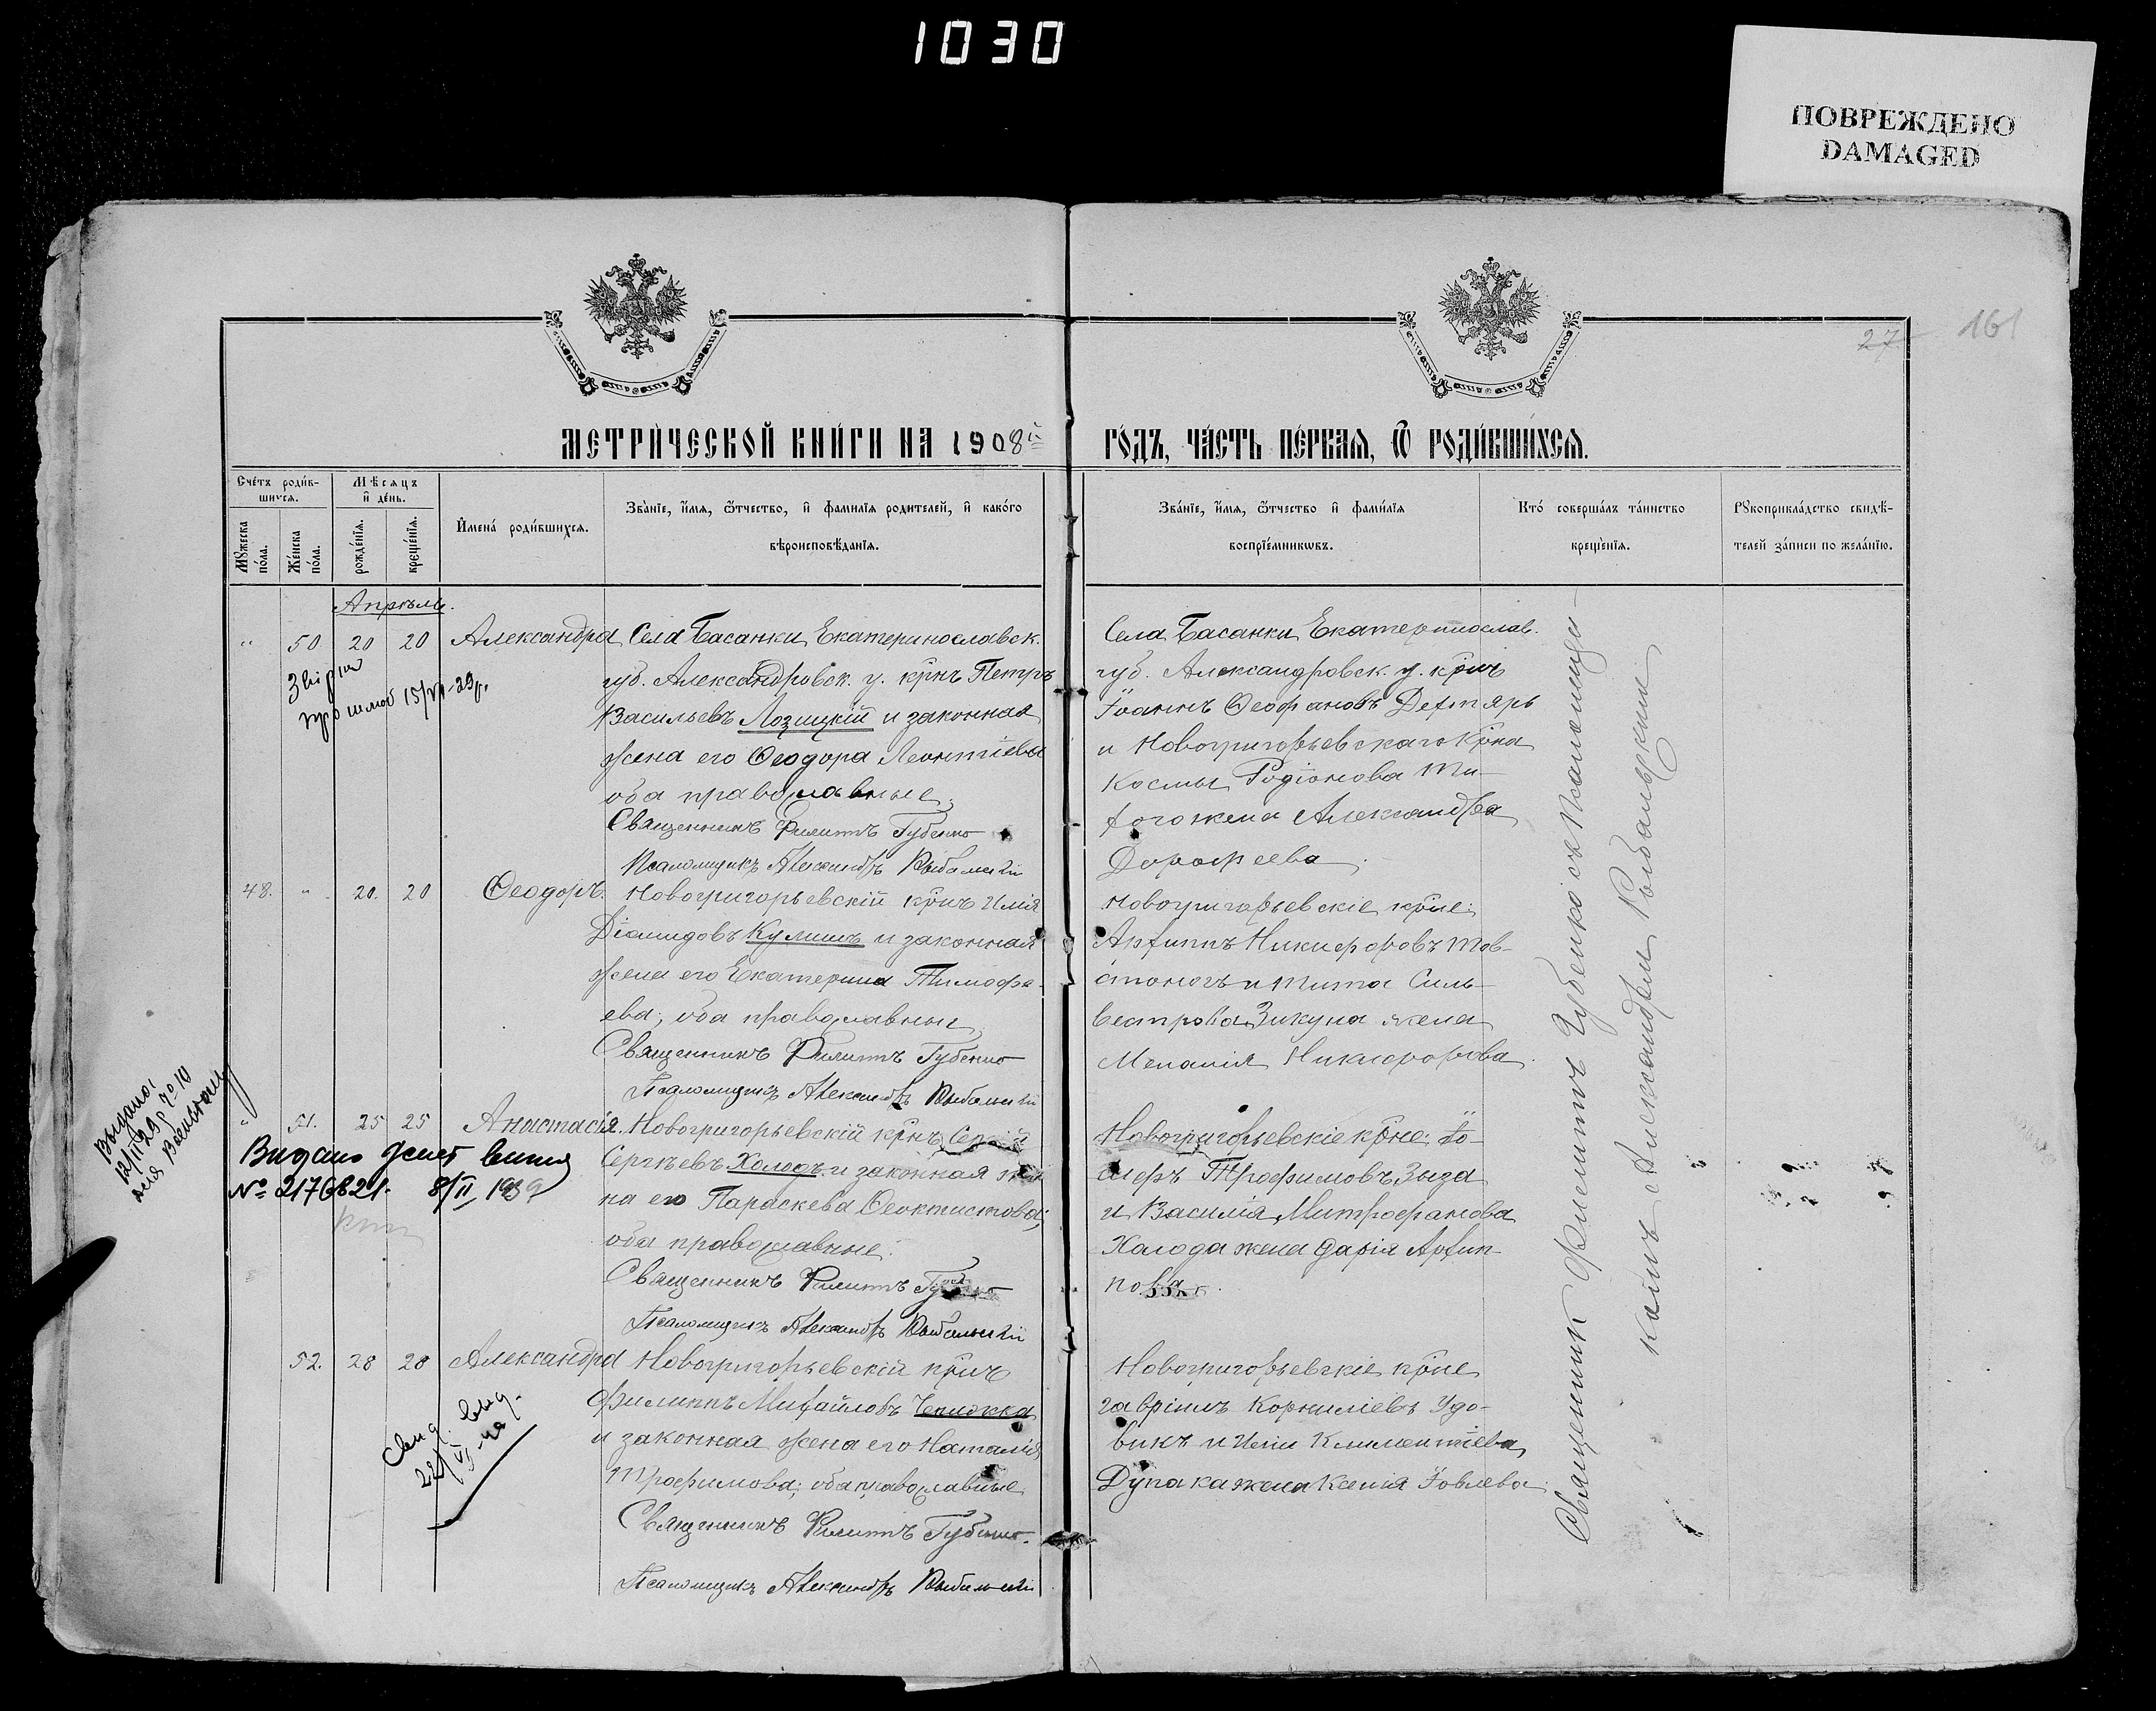 1030
ПОВРЕЖДЕНО
DAMAGED
27
161
МЕТРИ́ЧЕСКОЙ КНИ́ГИ НА 1908й
ГО́ДЪ, ЧА́СТЬ ПЕ́РВАѦ, Ѿ РОДИ́ВШИХСѦ.
Сче́тъ роди́в-
шихсѧ.
Мѣсѧцъ
и҆ де́нь.
Мꙋжеска по́ла.
Же́нска по́ла.
рожде́нїѧ.
креще́нїѧ.
И҆мена̀ роди́вшихсѧ.
Зва́нїе, и҆́мѧ, ѻ҆́тчество, и҆ фамилїѧ родителей, и҆ како́го
вѣроисповѣ́данїѧ.
Зва́нїе, и҆́мѧ, ѻ҆́тчество и҆ фами́лїѧ
воспрїе́мникѡвъ.
Кто́ соверша́лъ та́инство
креще́нїѧ.
Рꙋкоприкла́дство свидѣ́-
телей за́писи по жела́нїю.
Апрѣль.
" 50 20 20 Александра
Села Басанки Екатеринославск.
губ. Александровск. у. крнъ Петръ
Васильевъ Лозицкій и законная
жена его Ѳеодора Леонтіева
оба православные.
Священникъ Филиппъ Губенко
Псаломщикъ Александръ Рыбальскій
Села Басанки Екатеринослав.
губ. Александровск. у. крнъ
Іоаннъ Ѳеофановъ Дехтярь
и Новогригорьевскаго крна
Космы Родіонова Ти-
хого жена Александра
Дорофеева.
15/VII-29р.
48. " 20. 20 Ѳеодоръ.
Новогригорьевскій крнъ Илія
Діомидовъ Кулишъ и законная
жена его Екатерина Тимофе-
ева; оба православные
Священникъ Филиппъ Губенко
Псаломщикъ Александръ Рыбальскій
Новогригорьевскіе крне:
Архиппъ Никифоровъ Тов-
стоногъ и Тита Силь-
вестрова Зикуна жена
Меланія Никифорова.
" 51. 25 25 Анастасія.
Новогригорьевскій крнъ Сергій
Сергѣевъ Холодъ и законная же-
на его Параскева Ѳеоктистова;
оба православные.
Священникъ Филиппъ Губенко
Псаломщикъ Александръ Рыбальскій
Новогригорьевскіе крне: Іо-
сифъ Трофимовъ Зыза
и Василія Митрофанова
Холода жена Дарія Архип-
пова.
Выдано
12/II 29
для
Видано
№ 2176821. 8/II 1939
52. 28 28 Александра
Новогригорьевскій крнъ
Филиппъ Михайловъ Чепижка
и законная жена его Наталія
Трофимова; оба православные
Священникъ Филиппъ Губенко.
Псаломщикъ Александръ Рыбальскій
Новогригорьевскіе крне
Гавріилъ Корниліевъ Удо-
викъ и Иліи Климентіева
Дупака жена Ксенія Іовлева.
Свид. выд.
Священникъ Филиппъ Губенко съ Псаломщи-
комъ Александромъ Рыбальскимъ